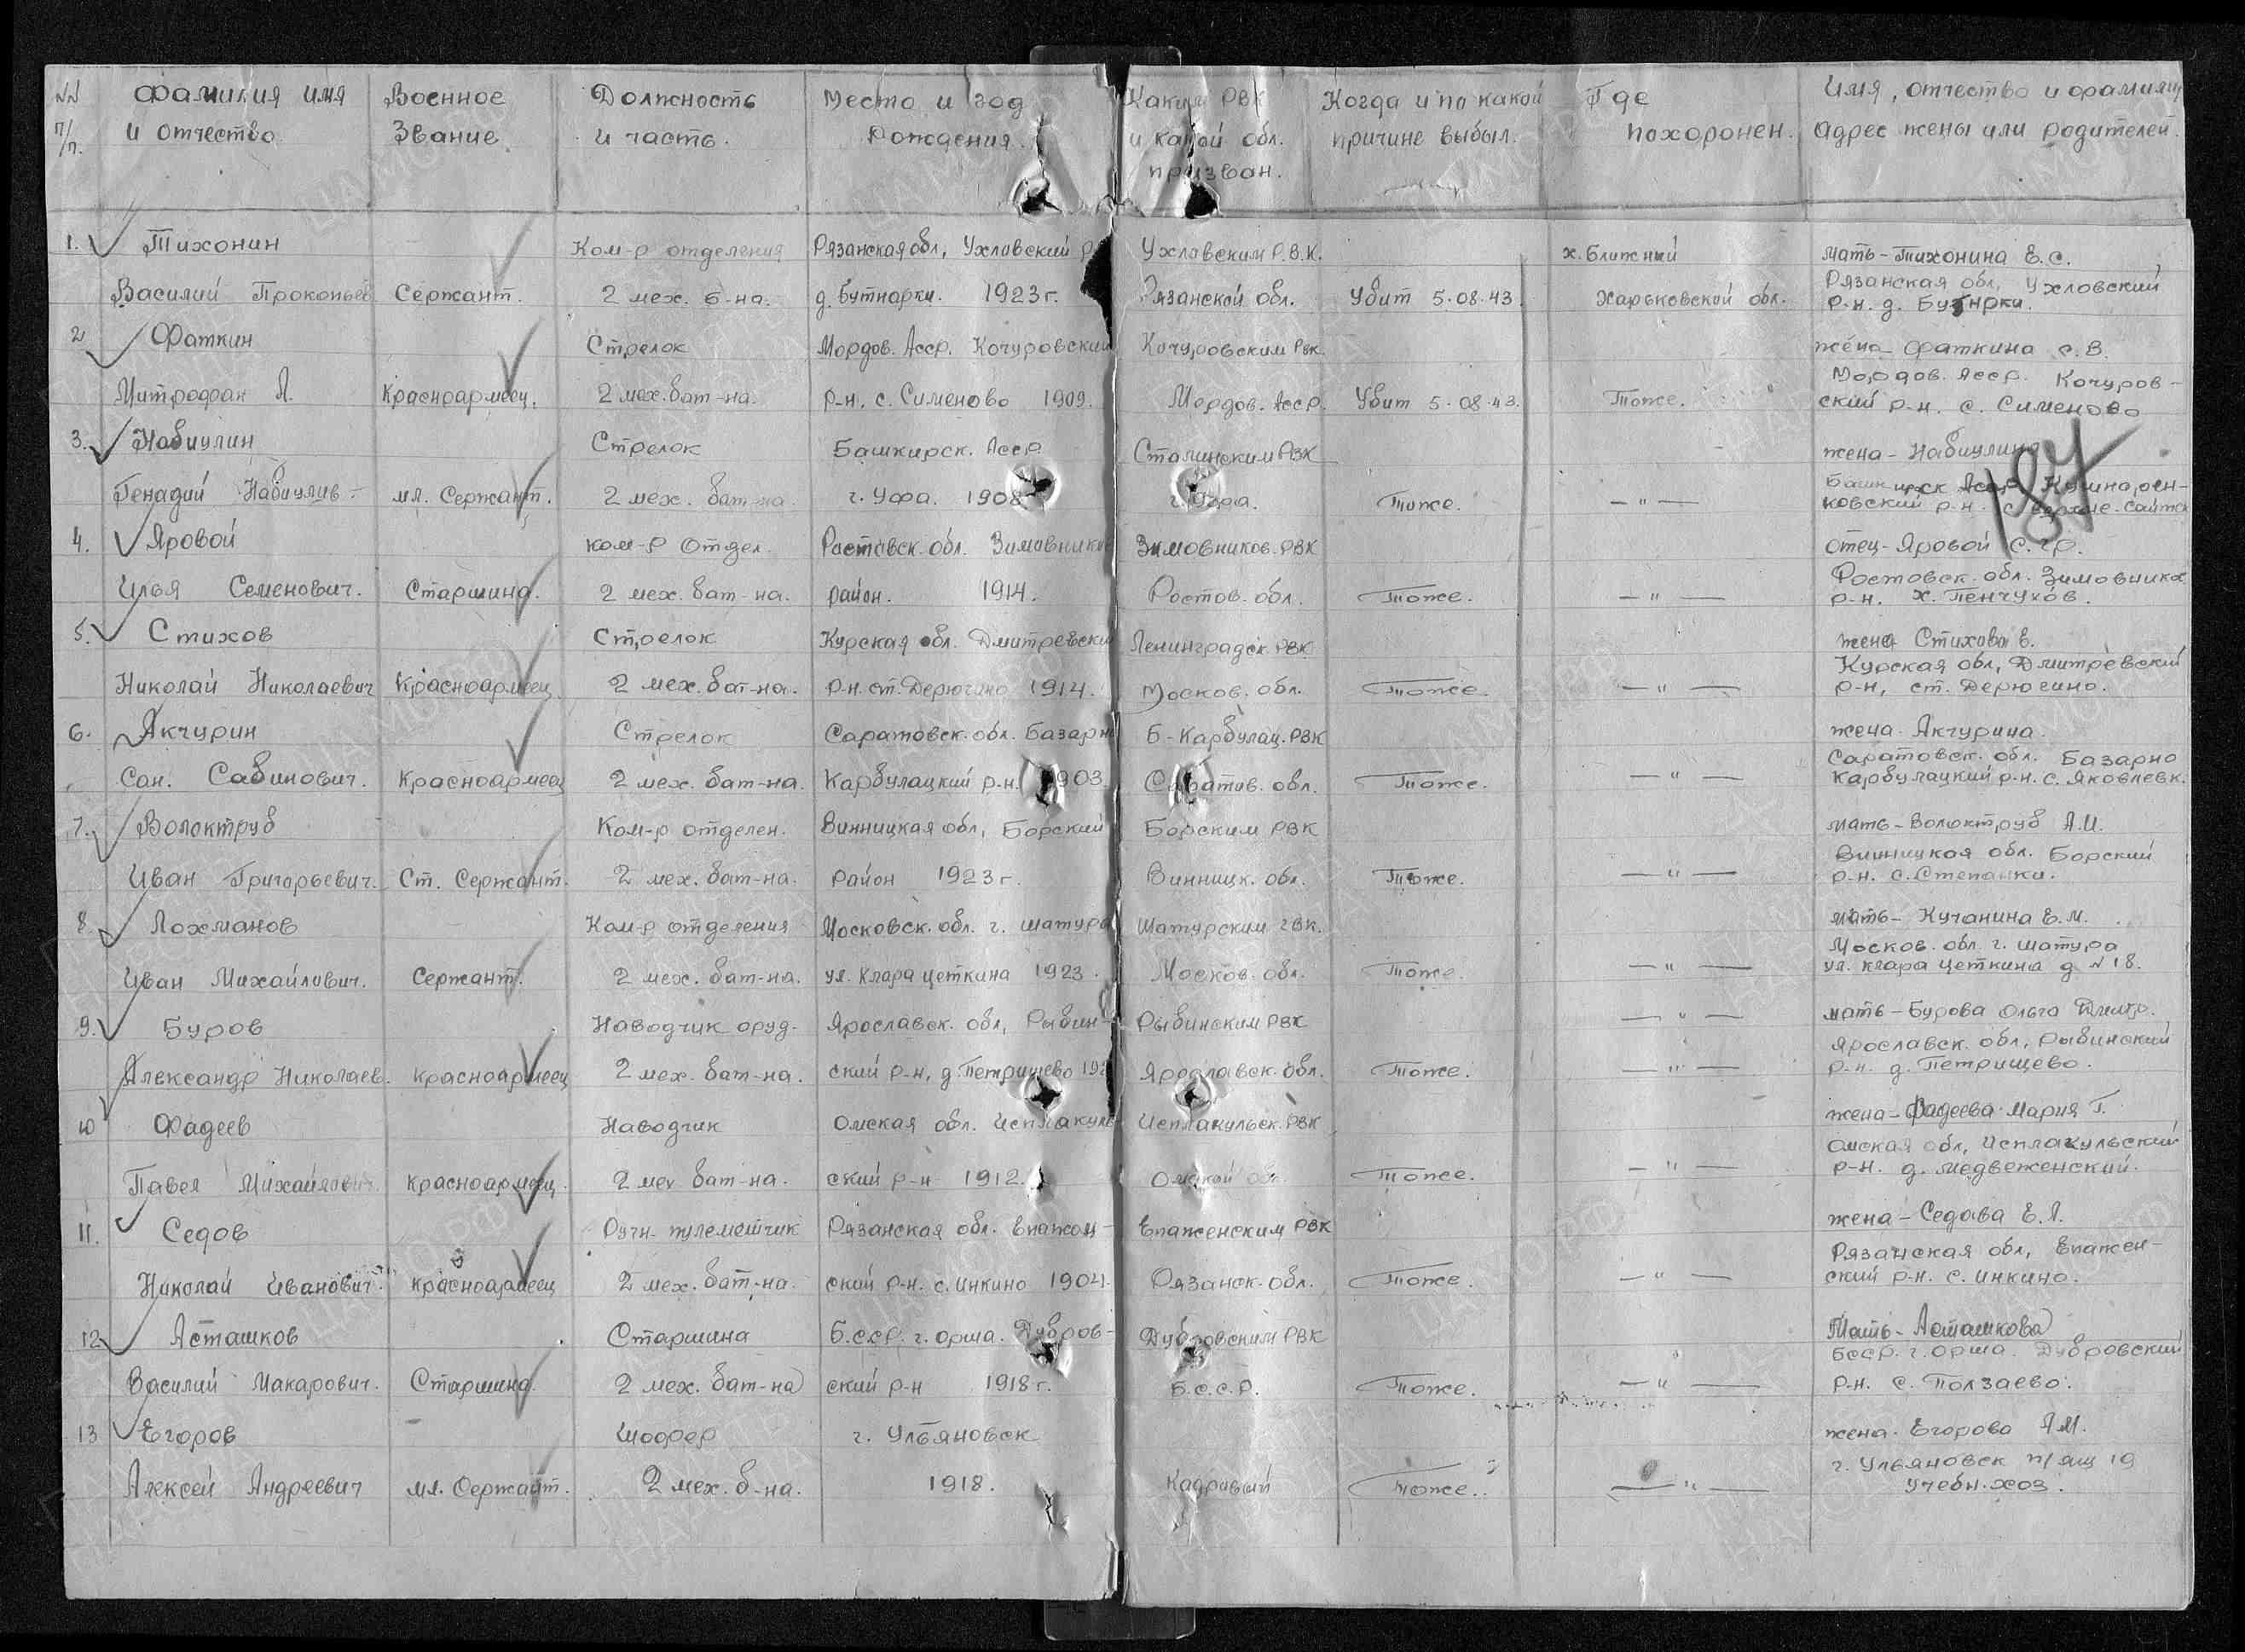 №№ Фамилия имя Военное Должность Место и год Каким РВК Когда и по какой Где Имя, отчество и фамилия
п/п. и отчество Звание и часть. Рождения. и какой обл. причине выбыл. похоронен. Адрес жены или родителей.
призван.
1. Тихонин Ком-р отделения Рязанская обл, Ухловский Ухловским Р.В.К. х. Ближний мать-Тихонина Е.С.
Василий Прокопьев Сержант. 2 мех. б-на. д. Бутнарки. 1923 г. Рязанской обл. Убит 5.08.43. Харьковской обл. Рязанская обл, Ухловский
р-н. д. Бутнрки.
2 Фаткин Стрелок Мордов. Асср. Кочуровский Кочуровским Рвк. жена-Фаткина С.В.
Митрофан А. Красноармеец. 2 мех. бат-на. р-н. с. Сименово 1909. Мордов. Асср. Убит 5.08.43. Тоже. Мордов. Асср. Кочуров-
ский р-н. с. Сименово
3. Набиулин Стрелок Башкирск. Асср. Сталинским РВК жена-Набиулина
Генадий Набиулив- мл. Сержант. 2 мех. бат-на. г. Уфа. 1908 г. Уфа. Тоже. -"- Башкирск Асср Кушнарен-
ковский р-н. с.
187
4. Яровой ком-р Отдел. Ростовск. обл. Зимовников Зимовников. РВК отец-Яровой С. Гр.
Илья Семенович. Старшина. 2 мех. бат-на. район. 1914. Ростов. обл. Тоже. -"- Ростовск. обл. Зимовников
р-н. х. Пенчуков.
5. Стихов Стрелок Курская обл. Дмитревский Ленинградск. РВК жена Стихова Е.
Николай Николаевич Красноармеец. 2 мех. бат-на. р-н. ст. Дерюгино 1914. Москов. обл. Тоже. -"- Курская обл, Дмитревский
р-н, ст. Дерюгино.
6. Акчурин Стрелок Саратовск. обл. Базарно Б-Карбулац. РВК жена. Акчурина.
Сан. Сабинович. Красноармеец 2 мех. бат-на. Карбулацкий р-н. 1903 Саратов. обл. Тоже. -"- Саратовск. обл. Базарно
Карбулацкий р-н. с. Яковлевк.
7. Волоктруб Ком-р отделен. Винницкая обл, Борский Борским РВК мать-Волоктруб А.И.
Иван Григорьевич. Ст. Сержант. 2 мех. бат-на. район 1923 г. Винницк. обл. Тоже. -"- Винницкая обл. Борский
р-н. с. Степанки.
8. Лохманов Ком-р отделения Московск. обл. г. Шатура Шатурским ГВК. мать-Кучанина Е.М.
Иван Михайлович. Сержант. 2 мех. бат-на. ул. Клара цеткина 1923. Москов. обл. Тоже. -"- Москов. обл. г. Шатура
ул. Клара Цеткина д №18.
9. Буров Наводчик оруд. Ярославск. обл, Рыбин- Рыбинским РВК -"- мать-Бурова Ольга Дмитр.
Александр Николаев. Красноармеец 2 мех. бат-на. ский р-н, д. Петрищево 192 Ярославск. обл. Тоже. -"- Ярославск. обл, Рыбинский
р-н. д. Петрищево.
10 Фадеев Наводчик Омская обл. Исплакуль Исплакульск. РВК жена-Фадеева Мария Г.
Павел Михайлович. Красноармеец. 2 мех бат-на. ский р-н 1912. Омской обл. Тоже. -"- Омская обл, Исплакульский
р-н. д. Медвеженский.
11. Седов Ручн. пулемётчик Рязанская обл. Епажен- Епаженским РВК жена-Седова Е.А.
Николай Иванович. Красноармеец 2 мех. бат-на. ский р-н. с. Инкино 1904. Рязанск. обл. Тоже. -"- Рязанская обл, Епажен-
ский р-н. с. Инкино.
12 Асташков Старшина Б.сср. г. Орша. Дубров- Дубровским РВК Мать-Асташкова
Василий Макарович. Старшина 2 мех. бат-на ский р-н 1918 г. Б.С.С.Р. Тоже. -"- БССР. г. Орша Дубровский
р-н. с. Ползаево.
13 Егоров Шофер г. Ульяновск жена. Егорова А.М.
Алексей Андреевич мл. Сержант. 2 мех. б-на. 1918. Кадровый Тоже. -"- г. Ульяновск п/ящ 19
Учебн. хоз.